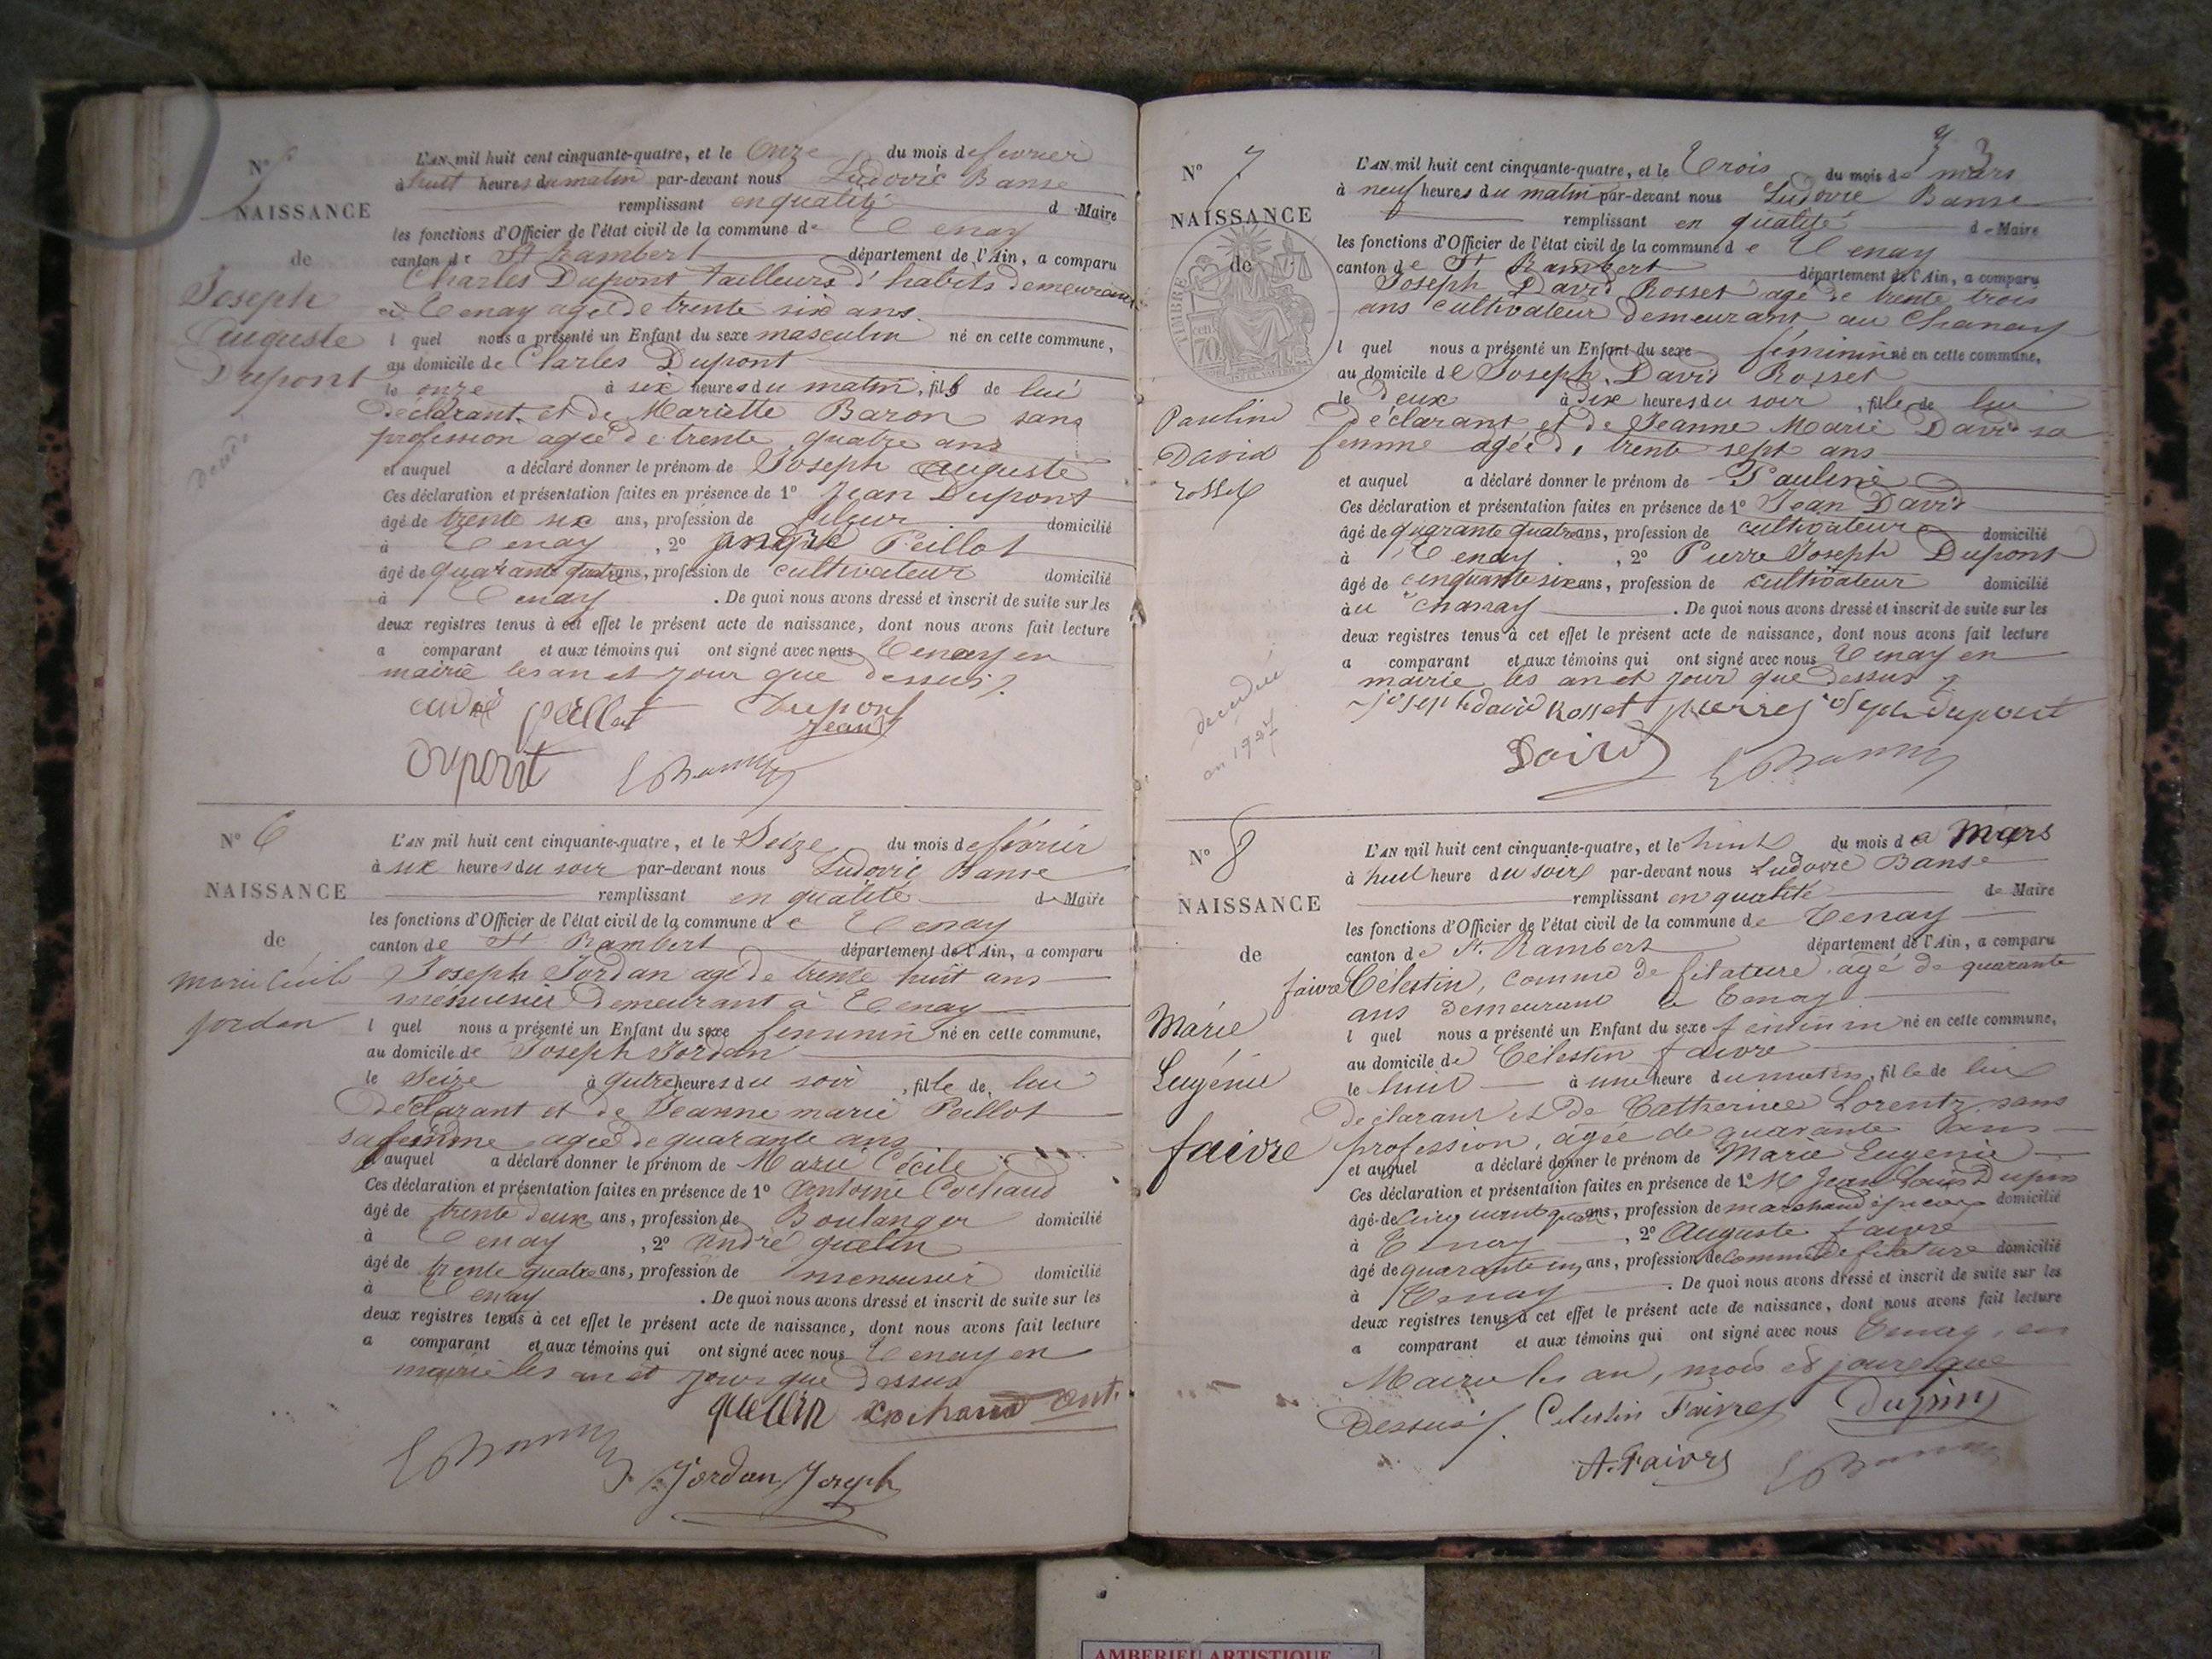 N° 5
NAISSANCE
de
Joseph
Auguste
Dupont
L'AN mil huit cent cinquante-quatre, et le Onze du mois de fevrier
à huit heures du matin par-devant nous Ludovic Banse
remplissant en qualité d Maire
les fonctions d'Officier de l'état civil de la commune de Tenay
canton de St Rambert département de l'Ain, a comparu
Charles Dupont tailleurs d'habits demeurant
à Tenay agé de trente six ans
l quel nous a présenté un Enfant du sexe masculin né en cette commune,
au domicile de Charles Dupont
le onze à six heures du matin, fils de lui
déclarant et de Mariette Baron sans
profession agée de trente quatre ans
et auquel a déclaré donner le prénom de Joseph Auguste
Ces déclaration et présentation faites en présence de 1° Jean Dupont
âgé de trente six ans, profession de fileur domicilié
à Tenay, 2° André Peillot
âgé de quarante quatre ans, profession de cultivateur domicilié
à Tenay. De quoi nous avons dressé et inscrit de suite sur les
deux registres tenus à cet effet le présent acte de naissance, dont nous avons fait lecture
a comparant et aux témoins qui ont signé avec nous Tenay en
mairie les an et jour que dessus
andré peillot Dupont
Jean
Dupont
N° 6
NAISSANCE
de
Marie Cécile
Jordan
L'AN mil huit cent cinquante-quatre, et le Seize du mois de février
à six heures du soir par-devant nous Ludovic Banse
remplissant en qualité de Maire
les fonctions d'Officier de l'état civil de la commune de Tenay
canton de St Rambert département de l'Ain, a comparu
Joseph Jordan agé de trente huit ans
ménuisier demeurant à Tenay
l quel nous a présenté un Enfant du sexe femínin né en cette commune,
au domicile de Joseph Jordan
le Seize à qutre heures du soir, fille de lui
déclarant et de Jeanne marie Peillot
sa femme agée de quarante ans
et auquel a déclaré donner le prénom de Marie Cécile
Ces déclaration et présentation faites en présence de 1° Antoine Cochaud
âgé de trente deux ans, profession de Boulanger domicilié
à Tenay, 2° André quelin
âgé de trente quatre ans, profession de menuisier domicilié
à Tenay. De quoi nous avons dressé et inscrit de suite sur les
deux registres tenus à cet effet le présent acte de naissance, dont nous avons fait lecture
a comparant et aux témoins qui ont signé avec nous Tenay en
mairie les an et jour que dessus
quelin cochaud ant.
Jordan Joseph
3
N° 7
NAISSANCE
de
TIMBRE
Pauline
David
rosset
decedée
en 1927
L'AN mil huit cent cinquante-quatre, et le Trois du mois de mars
à neuf heures du matin par-devant nous Ludovic Banse
remplissant en qualité de Maire
les fonctions d'Officier de l'état civil de la commune de Tenay
canton de St Rambert département de l'Ain, a comparu
Joseph David Rosset agé de trente trois
ans cultivateur demeurant au Chanay
l quel nous a présenté un Enfant du sexe féminin né en cette commune,
au domicile de Joseph David Rosset
le deux à six heures du soir, fille de lui
déclarant et de Jeanne Marie David sa
femme agée de trente sept ans
et auquel a déclaré donner le prénom de Pauline
Ces déclaration et présentation faites en présence de 1° Jean David
âgé de quarante quatre ans, profession de cultivateur domicilié
à Tenay, 2° Pierre Joseph Dupont
âgé de cinquante six ans, profession de cultivateur domicilié
àu chanay. De quoi nous avons dressé et inscrit de suite sur les
deux registres tenus à cet effet le présent acte de naissance, dont nous avons fait lecture
a comparant et aux témoins qui ont signé avec nous Tenay en
mairie les an et jour que dessus
joseph david Rosset pierre joseph dupont
David
N° 8
NAISSANCE
de
Marie
Eugénie
faivre
L'AN mil huit cent cinquante-quatre, et le huit du mois de Mars
à huit heure du soir par-devant nous Ludovic Banse
remplissant en qualité de Maire
les fonctions d'Officier de l'état civil de la commune de Tenay
canton de St. Rambert département de l'Ain, a comparu
faivre Célestin, commis de filature, agé de quarante
ans demeurant à Tenay
l quel nous a présenté un Enfant du sexe feminin né en cette commune,
au domicile de Célestin faivre
le huit à une heure du matin, fille de lui
déclarant et de Catherine Lorentz, sans
profession, agée de quarante ans
et auquel a déclaré donner le prénom de Marie Eugenie
Ces déclaration et présentation faites en présence de 1° M Jean Louis Dupin
âgé de ans, profession de marchand épicier domicilié
à Tenay, 2° Auguste faivre
âgé de quarante un ans, profession de Commis de filature domicilié
à Tenay. De quoi nous avons dressé et inscrit de suite sur les
deux registres tenus à cet effet le présent acte de naissance, dont nous avons fait lecture
a comparant et aux témoins qui ont signé avec nous Tenay, en
Mairie les an, mois et jour que
dessus. Celestin Faivre Dupin
A. Faivre
AMBERIEU ARTISTIQUE